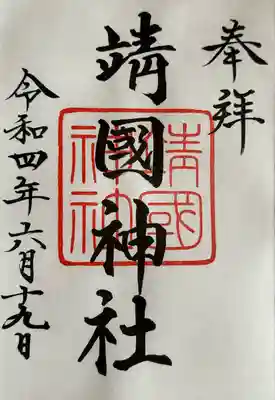 奉拝
靖國神社
靖國
神社
令和四年六月十九日